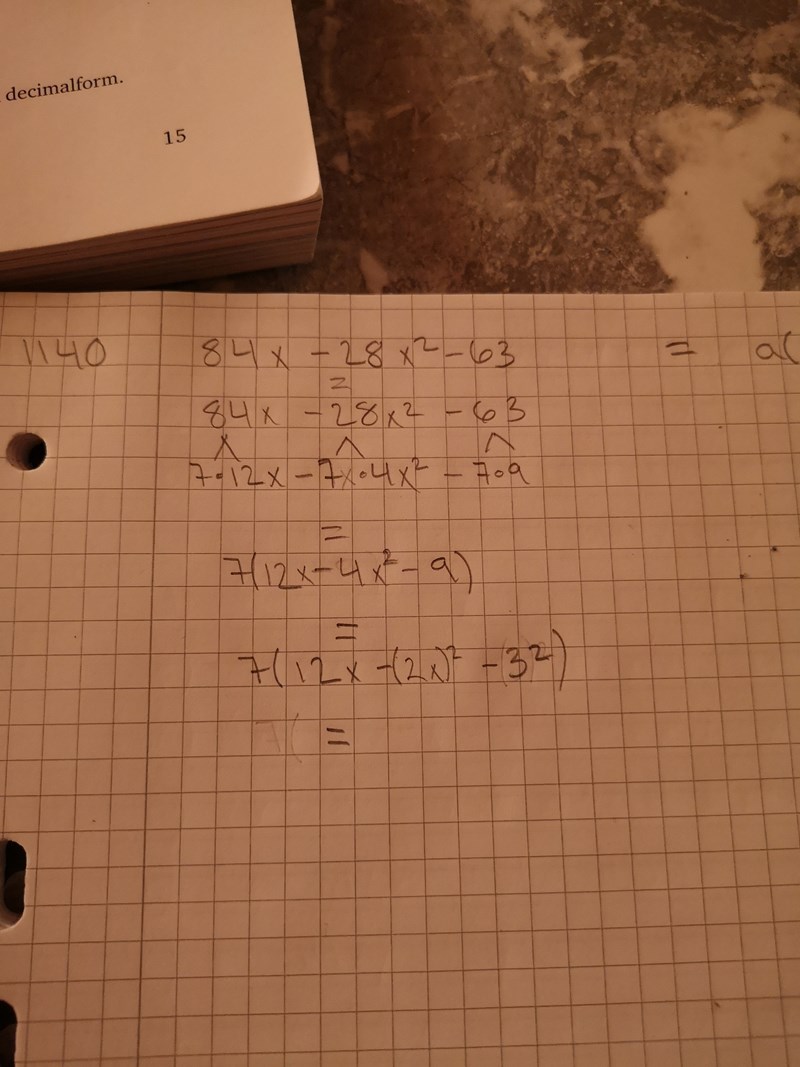 decimalform.
15
1140 84x - 28x² - 63 = a(
=
84x - 28x² - 63
7·12x - 7x·4x² - 7·9
=
7(12x - 4x² - 9)
=
7(12x - (2x)² - 3²)
7( =